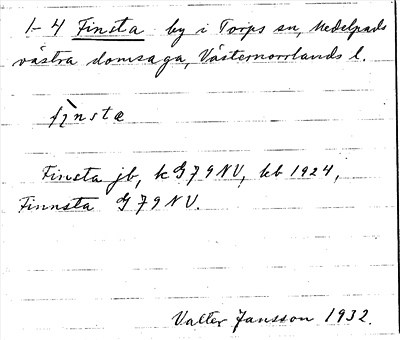 1-4 Finsta by i Torps sn, Medelpads
västra domsaga, Västernorrlands l.
fìnstæ
Finsta jb, k G79NV, kb 1924,
Finnsta G79NV.
Valter Jansson 1932.